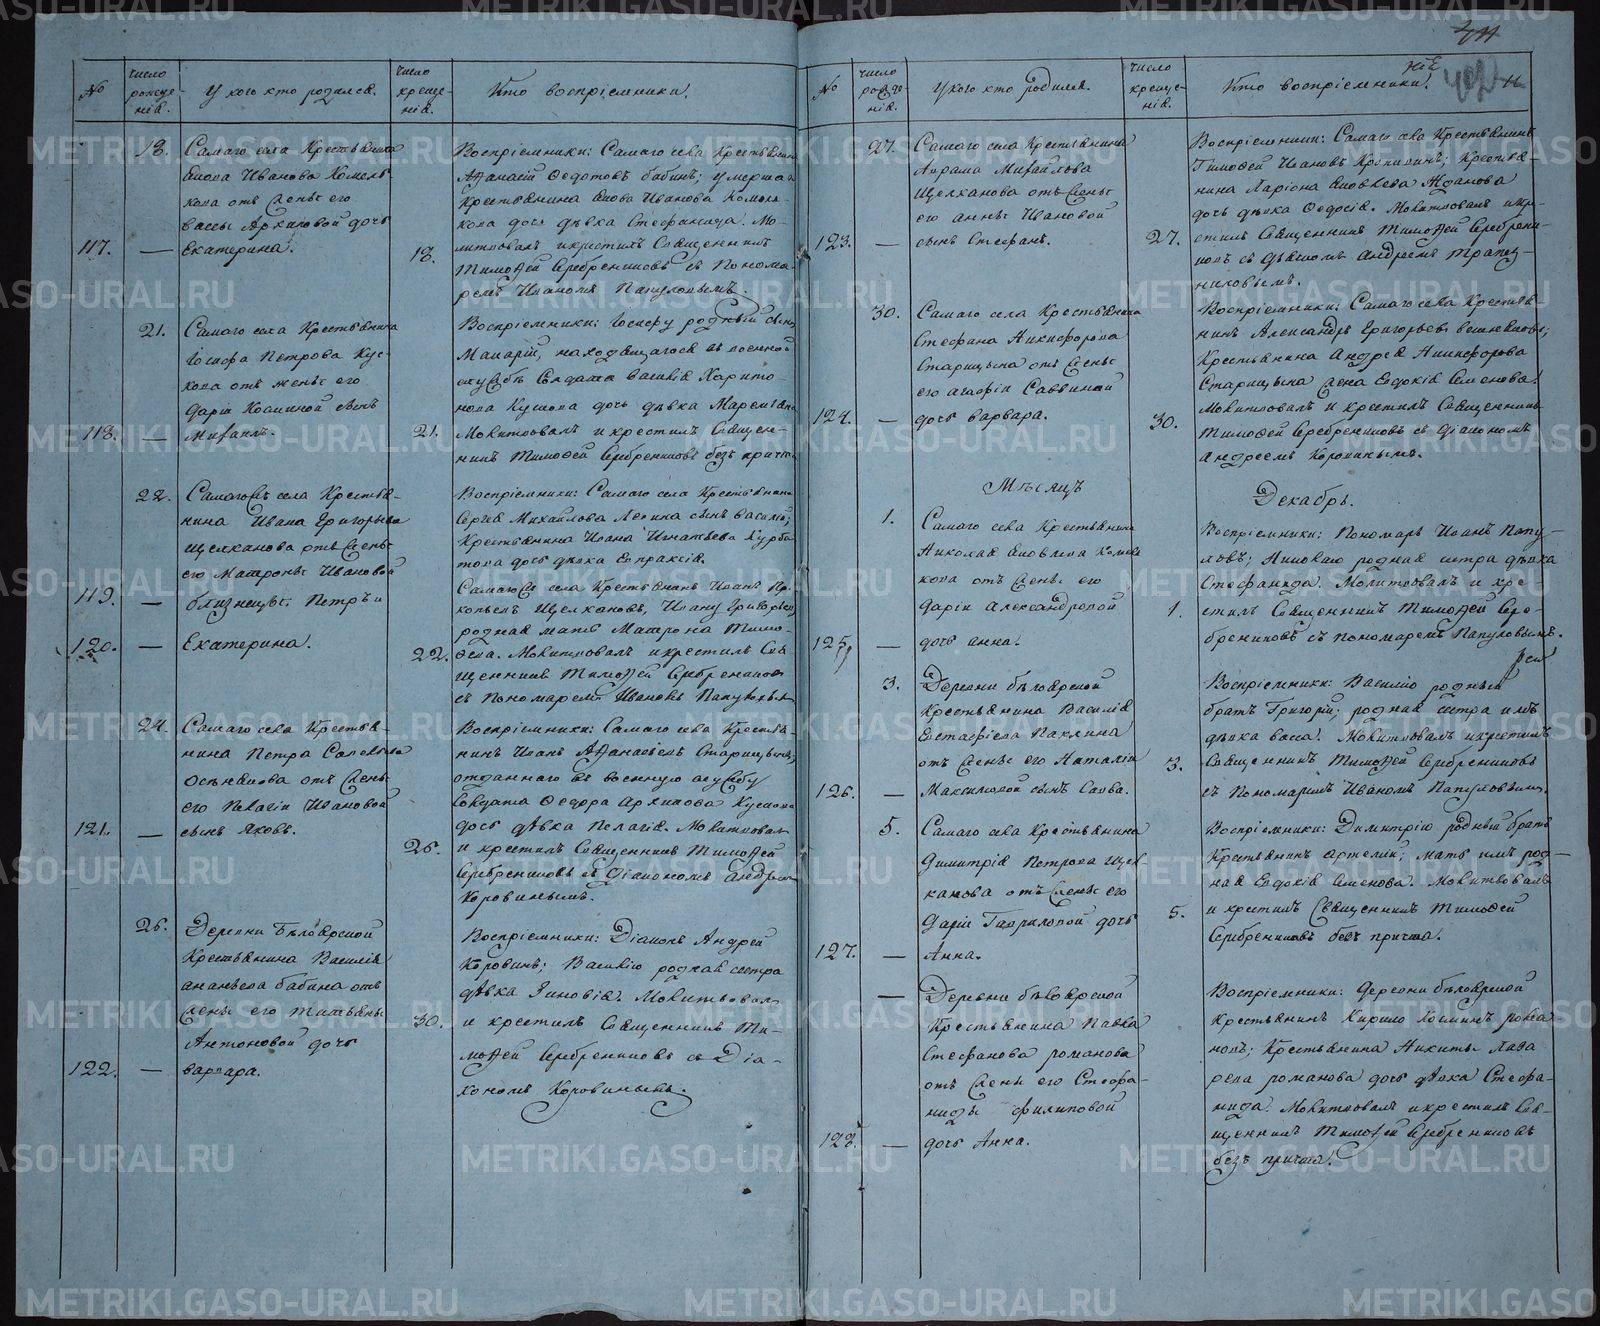 №
число рожде-
нія.
У кого кто родился.
число
креще-
нія.
Кто воспріемники.
18.
Самаго села Крестьянина
Якова Иванова Комель-
кова отъ жены его
Вассы Архиповой дочь
117. — Екатерина.
18.
Воспріемники: Самаго села Крестьянинъ
Афанасій Федотовъ Бабинъ; умершаго
Крестьянина Якова Иванова Комель-
кова дочь дѣвка Стефанида. Мо-
литвовалъ и крестилъ Священникъ
Тимофей Серебренниковъ съ Понома-
ремъ Иваномъ Папуловымъ.
21.
Самаго села Крестьянина
Іосифа Петрова Кус-
кова отъ жены его
Дарьи Косминой сынъ
118. — Михаилъ.
21.
Воспріемники: Іосифу родный сынъ
Макарій, находящагося въ военной
службѣ Солдата Василія Харито-
нова Кускова дочь дѣвка Маремьяна
Молитвовалъ и крестилъ Священ-
никъ Тимофей Серебренниковъ безъ причта
22.
Самаго села Крестья-
нина Ивана Григорьева
Щелканова отъ жены
его Матроны Ивановой
119. — близнецы: Петръ и
120. — Екатерина.
22.
Воспріемники: Самаго села Крестьянина
Сергея Михайлова сынъ Василій;
Крестьянина Ивана Игнатьева Курба-
това дочь дѣвка Евпраксія.
Самаго села Крестьянинъ Иванъ Про-
копьевъ Щелкановъ, Ивану Григорьеву
родная мать Матрона Тимо-
феева. Молитвовалъ и крестилъ Свя-
щенникъ Тимофей Серебренниковъ
съ Пономаремъ Иваномъ Папуловымъ
24.
Самаго села Крестья-
нина Петра Савельева
отъ жены
его Пелагіи Ивановой
121. — сынъ Яковъ.
25.
Воспріемники: Самаго села Крестья-
нинъ Иванъ Афанасіевъ Старицынъ,
отданнаго въ военную службу
Солдата Федора Архипова Кускова
дочь дѣвка Пелагія. Молитвовалъ
и крестилъ Священникъ Тимофей
Серебренниковъ съ Діакономъ Андреемъ
Коровинымъ.
26.
Деревни Бѣлоярской
Крестьянина Василія
Ананьева Бабина отъ
жены его Татьяны
Антоновой дочь
122. — Варвара.
30.
Воспріемники: Діаконъ Андрей
Коровинъ; Василію родная сестра
дѣвка Зиновія. Молитвовалъ
и крестилъ Священникъ Ти-
мофей Серебренниковъ съ Діа-
кономъ Коровинымъ.
№
число
рожде-
нія.
У кого кто родился.
число
креще-
нія.
Кто воспріемники.
27.
Самаго села Крестьянина
Аврама Михайлова
Щелканова отъ жены
его Анны Ивановой
123. — сынъ Стефанъ.
27.
Воспріемники: Самаго села Крестьянинъ
Тимофей Ивановъ; Крестья-
нина Ларіона Яковлева Жданова
дочь дѣвка Федосія. Молитвовалъ и кре-
стилъ Священникъ Тимофей Серебрени-
ковъ съ дьячкомъ Андреемъ Трапез-
никовымъ.
30.
Самаго села Крестьянина
Стефана Никифорова
Старицына отъ жены
его Агафіи Саввиной
124. — дочь Варвара.
30.
Воспріемники: Самаго села Крестья-
нинъ Александръ Григорьевъ;
Крестьянина Андрея Никифорова
Старицына жена Евдокія Семенова.
Молитвовалъ и крестилъ Священникъ
Тимофей Серебренниковъ съ Діакономъ
Андреемъ Коровинымъ.
Мѣсяцъ Декабрь.
1.
Самаго села Крестьянина
Николая Яковлева Комель-
кова отъ жены его
Дарьи Александровой
125. — дочь Анна.
1.
Воспріемники: Пономарь Иванъ Папу-
ловъ; Николаю родная сестра дѣвка
Стефанида. Молитвовалъ и кре-
стилъ Священникъ Тимофей Сере-
бренниковъ съ пономаремъ Папуловымъ.
3.
Деревни Бѣлоярской
Крестьянина Василія
Евстафіева Паклина
отъ жены его Наталіи
126. — Максимовой сынъ Савва.
3.
Воспріемники: Василію родный
братъ Григорій; родная сестра имъ
дѣвка Васса. Молитвовалъ и крестилъ
Священникъ Тимофей Серебренниковъ
съ Пономаремъ Иваномъ Папуловымъ.
5.
Самаго села Крестьянина
Димитрія Петрова Щел-
канова отъ жены его
Дарьи Гавриловой дочь
127. — Анна.
5.
Воспріемники: Димитрію родный братъ
Крестьянинъ Артемій; мать имъ род-
ная Евдокія Семенова. Молитвовалъ
и крестилъ Священникъ Тимофей
Серебренниковъ безъ причта.
—
Деревни Бѣлоярской
Крестьянина Павла
Стефанова Романова
отъ жены его Стефа-
ниды Филиповой
128. — дочь Анна.
Воспріемники: деревни Бѣлоярской
Крестьянинъ Кирило Косминъ Рома-
новъ; Крестьянина Никиты Лаза-
рева Романова дочь дѣвка Стефа-
нида. Молитвовалъ и крестилъ Свя-
щенникъ Тимофей Серебренниковъ
безъ причта.
METRIKI.GASO-URAL.RU